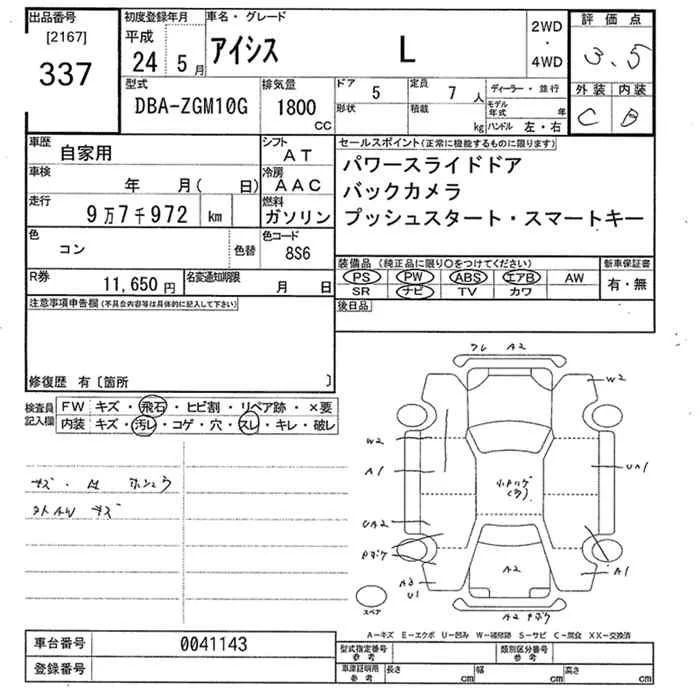 出品番号
[2167]
337
初度登録年月
平成
24 5月
車名・グレード
アイシス L
2WD
・
4WD
評価点
3.5
外装 内装
C B
型式
DBA-ZGM10G
排気量
1800
CC
ドア 5
定員 7 人
形状
積載 kg
ディーラー・並行
モデル年式 年
ハンドル 左・右
車歴
自家用
シフト
AT
車検
年 月( 日)
冷房
AAC
走行
9万7千972 km
燃料
ガソリン
色
コン
色替
色コード
8S6
R券
11,650円
名変通知期限
月 日
セールスポイント(正常に機能するものに限ります)
パワースライドドア
バックカメラ
プッシュスタート・スマートキー
装備品(純正品に限り○をつけてください)
PS PW ABS エアB AW
SR ナビ TV カワ
新車保証書
有・無
後日品
注意事項申告欄(不具合内容等は具体的に記入して下さい)
修復歴 有〔箇所 〕
検査員
記入欄
FW キズ・飛石・ヒビ割・リペア跡・×要
内装 キズ・汚レ・コゲ・穴・スレ・キレ・破レ
キズ・凹
外AW キズ
A2
W2
W2
A1
UA1
UA2
A2
U1
A2
A1
A2
スペア
A－キズ E－エクボ U－凹み W－補修跡 S－サビ C－腐食 XX－交換済
車台番号 0041143
登録番号
型式指定番号
参考
類別区分番号
参考
車庫証明用
参考
長さ cm
幅 cm
高さ cm